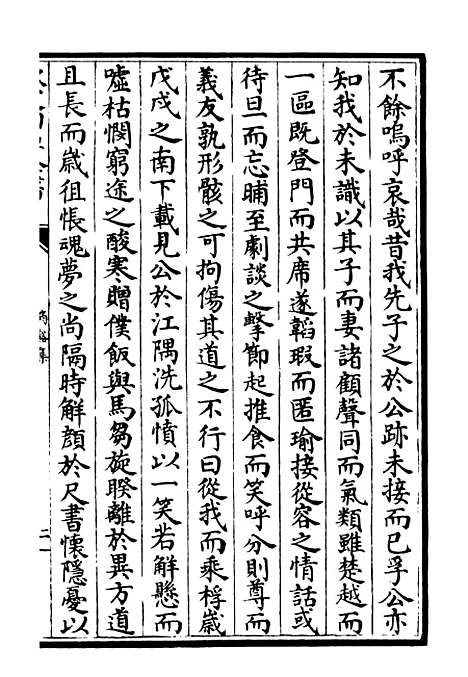 不餘嗚呼哀哉昔我先子之於公跡未接而已孚公亦
知我於未識以其子而妻諸顧聲同而氣類雖楚越而
一區既登門而共席遂韜瑕而匿瑜接從容之情話或
待旦而忘晡至劇談之擊節起推食而笑呼分則尊而
義友孰形骸之可拘傷其道之不行曰從我而乘桴歲
戊戌之南下載見公於江隅洗孤憤以一笑若解懸而
噓枯憫窮途之酸寒贈僕飯與馬芻旋暌離於異方道
且長而歲徂悵魂夢之尚隔時解顏於尺書懷隱憂以